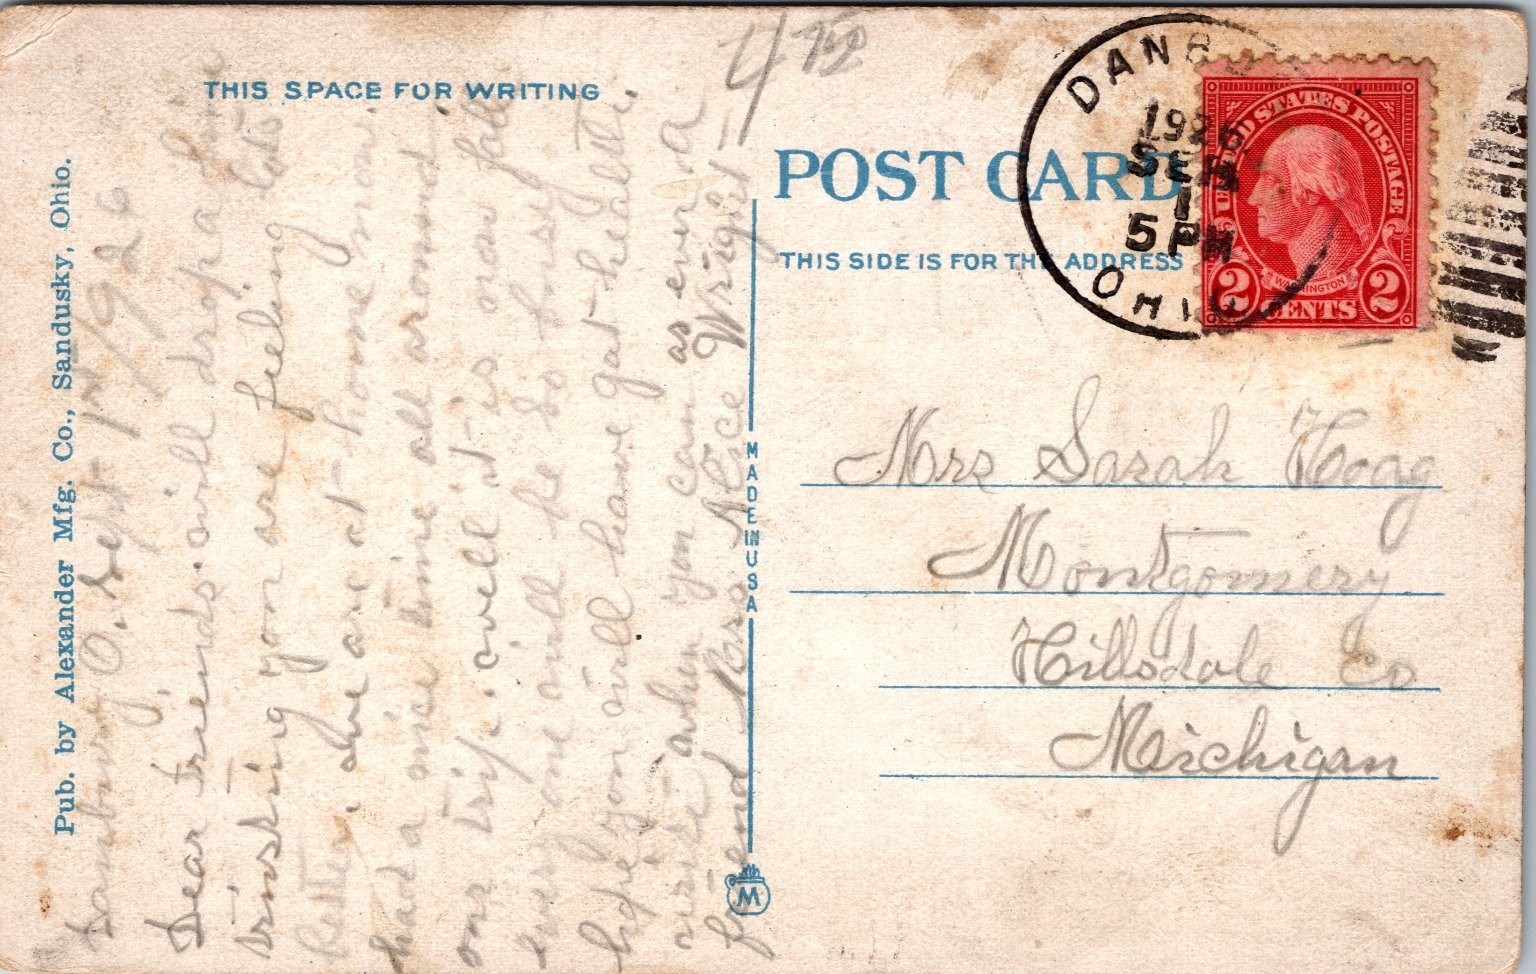 THIS SPACE FOR WRITING
Pub. by Alexander Mfg. Co., Sandusky, Ohio.
Danbury, O. Sept 1st 1926
Dear friends. will drop a line
trusting you are feeling lots
better, we are at home now
had a nice time all around
our trip. well it is now fall
every one will be so busy
hope you will have got health.
write when you can as ever a
friend Mrs Alice Wright
MADE IN USA
M
POST CARD
THIS SIDE IS FOR THE ADDRESS
DANBURY
1926
SEP
1
5 PM
OHIO
UNITED STATES POSTAGE
WASHINGTON
2 CENTS 2
Mrs Sarah Hoag
Montgomery
Hillsdale Co
Michigan